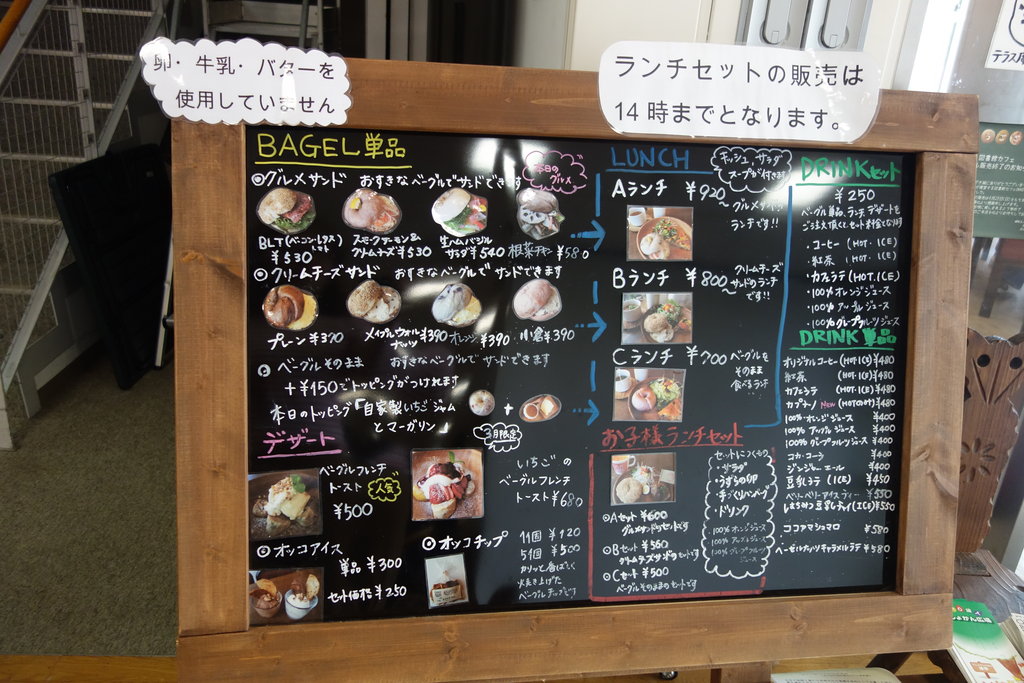 卵・牛乳・バターを
使用していません
ランチセットの販売は
14時までとなります。
BAGEL単品
◎グルメサンド おすきなベーグルでサンドできます
本日のグルメ
BLT(ベーコンレタストマト)
¥530
スモークサーモン&
クリームチーズ¥530
生ハムバジル
サラダ¥540
根菜チキン ¥580
◎クリームチーズサンド おすきなベーグルでサンドできます
プレーン¥370
メイプルウォルナッツ¥390
オレンジ¥390
小倉¥390
◎ベーグルそのまま おすきなベーグルでサンドできます
+¥150でトッピングがつけれます
本日のトッピング「自家製いちごジャム
とマーガリン」
デザート
ベーグルフレンチ
トースト 人気
¥500
3月限定
いちごの
ベーグルフレンチ
トースト¥680
◎オッコアイス
単品¥300
セット価格¥250
◎オッコチップ
11個 ¥920
5個 ¥500
カリッと香ばしく
焼き上げた
ベーグルチップです
LUNCH
キッシュ、サラダ
スープが付きます
Aランチ ¥920〜
グルメサンドの
ランチです!!
Bランチ ¥800〜
クリームチーズ
サンドのランチ
です!!
Cランチ ¥700
ベーグルを
そのまま
食べるランチ
お子様ランチセット
セットにつくもの
・サラダ
・うずらの卵
・手づくりハンバーグ
・ドリンク
100%オレンジジュース
100%アップルジュース
100%グレープフルーツ
ジュース
◎Aセット¥600
グルメサンドのセットです
◎Bセット¥560
クリームチーズサンドのセットです
◎Cセット¥500
ベーグルそのままのセットです
DRINKセット
¥250
ベーグル単品、ランチ、デザートを
ご注文頂くと、セット料金となります
・コーヒー(HOT・ICE)
・紅茶(HOT・ICE)
・カフェラテ(HOT・ICE)
・100%オレンジジュース
・100%アップルジュース
・100%グレープフルーツジュース
DRINK単品
オリジナルコーヒー(HOT・ICE)¥480
紅茶(HOT・ICE)¥480
カフェラテ(HOT・ICE)¥480
カプチーノ New (HOTのみ)¥480
100%オレンジジュース ¥400
100%アップルジュース ¥400
100%グレープフルーツジュース ¥400
コカ・コーラ ¥400
ジンジャーエール ¥400
豆乳ラテ(ICE)¥450
ベリーベリーアイスティー ¥550
はちみつ豆乳レモネ(ICE)¥550
ココアマシュマロ ¥580
ヘーゼルナッツキャラメルラテ¥580